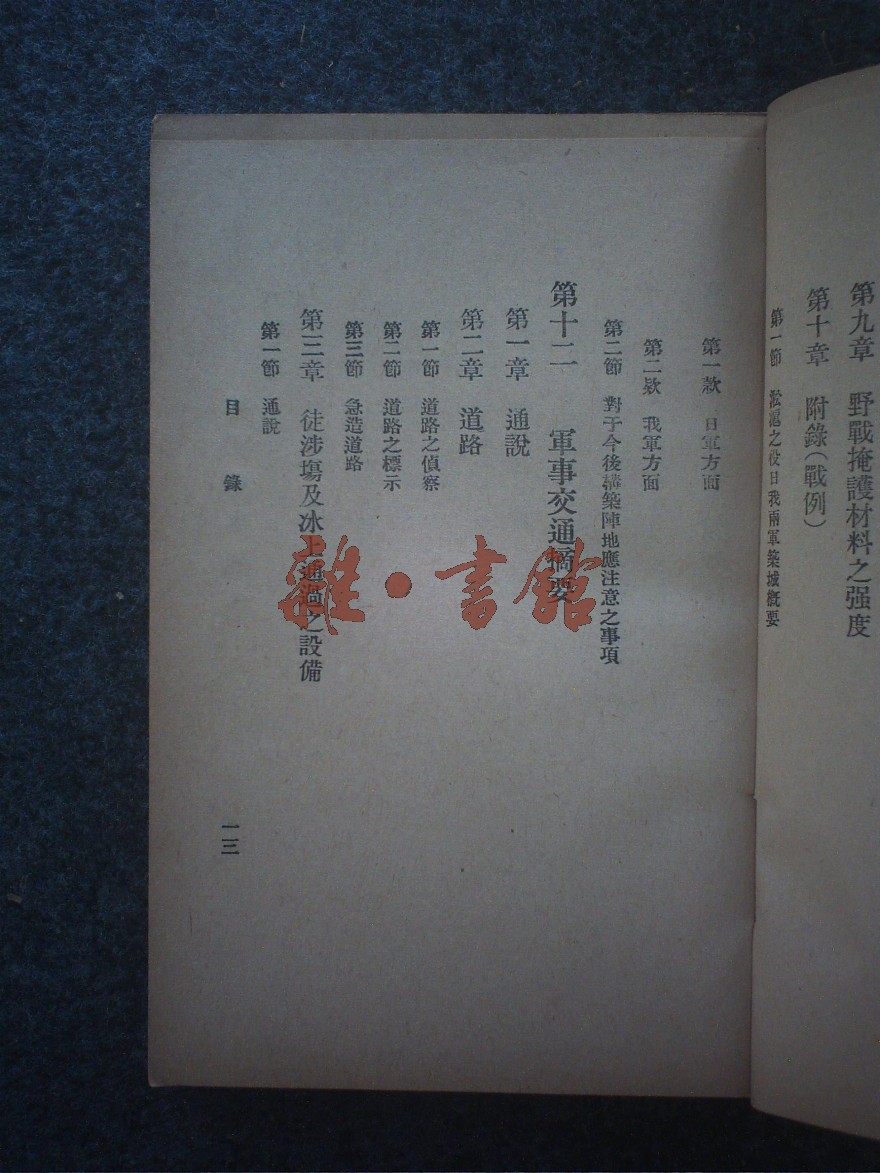 第九章　野戰掩護材料之强度
第十章　附錄（戰例）
第一節　淞滬之役日我兩軍築城概要
第一款　日軍方面
第二欵　我軍方面
第二節　對于今後構築陣地應注意之事項
第十二　軍事交通摘要
第一章　通說
第二章　道路
第一節　道路之偵察
第二節　道路之標示
第三節　急造道路
第三章　徒涉塲及冰上通過之設備
第一節　通說
目錄
一三
雜·書館